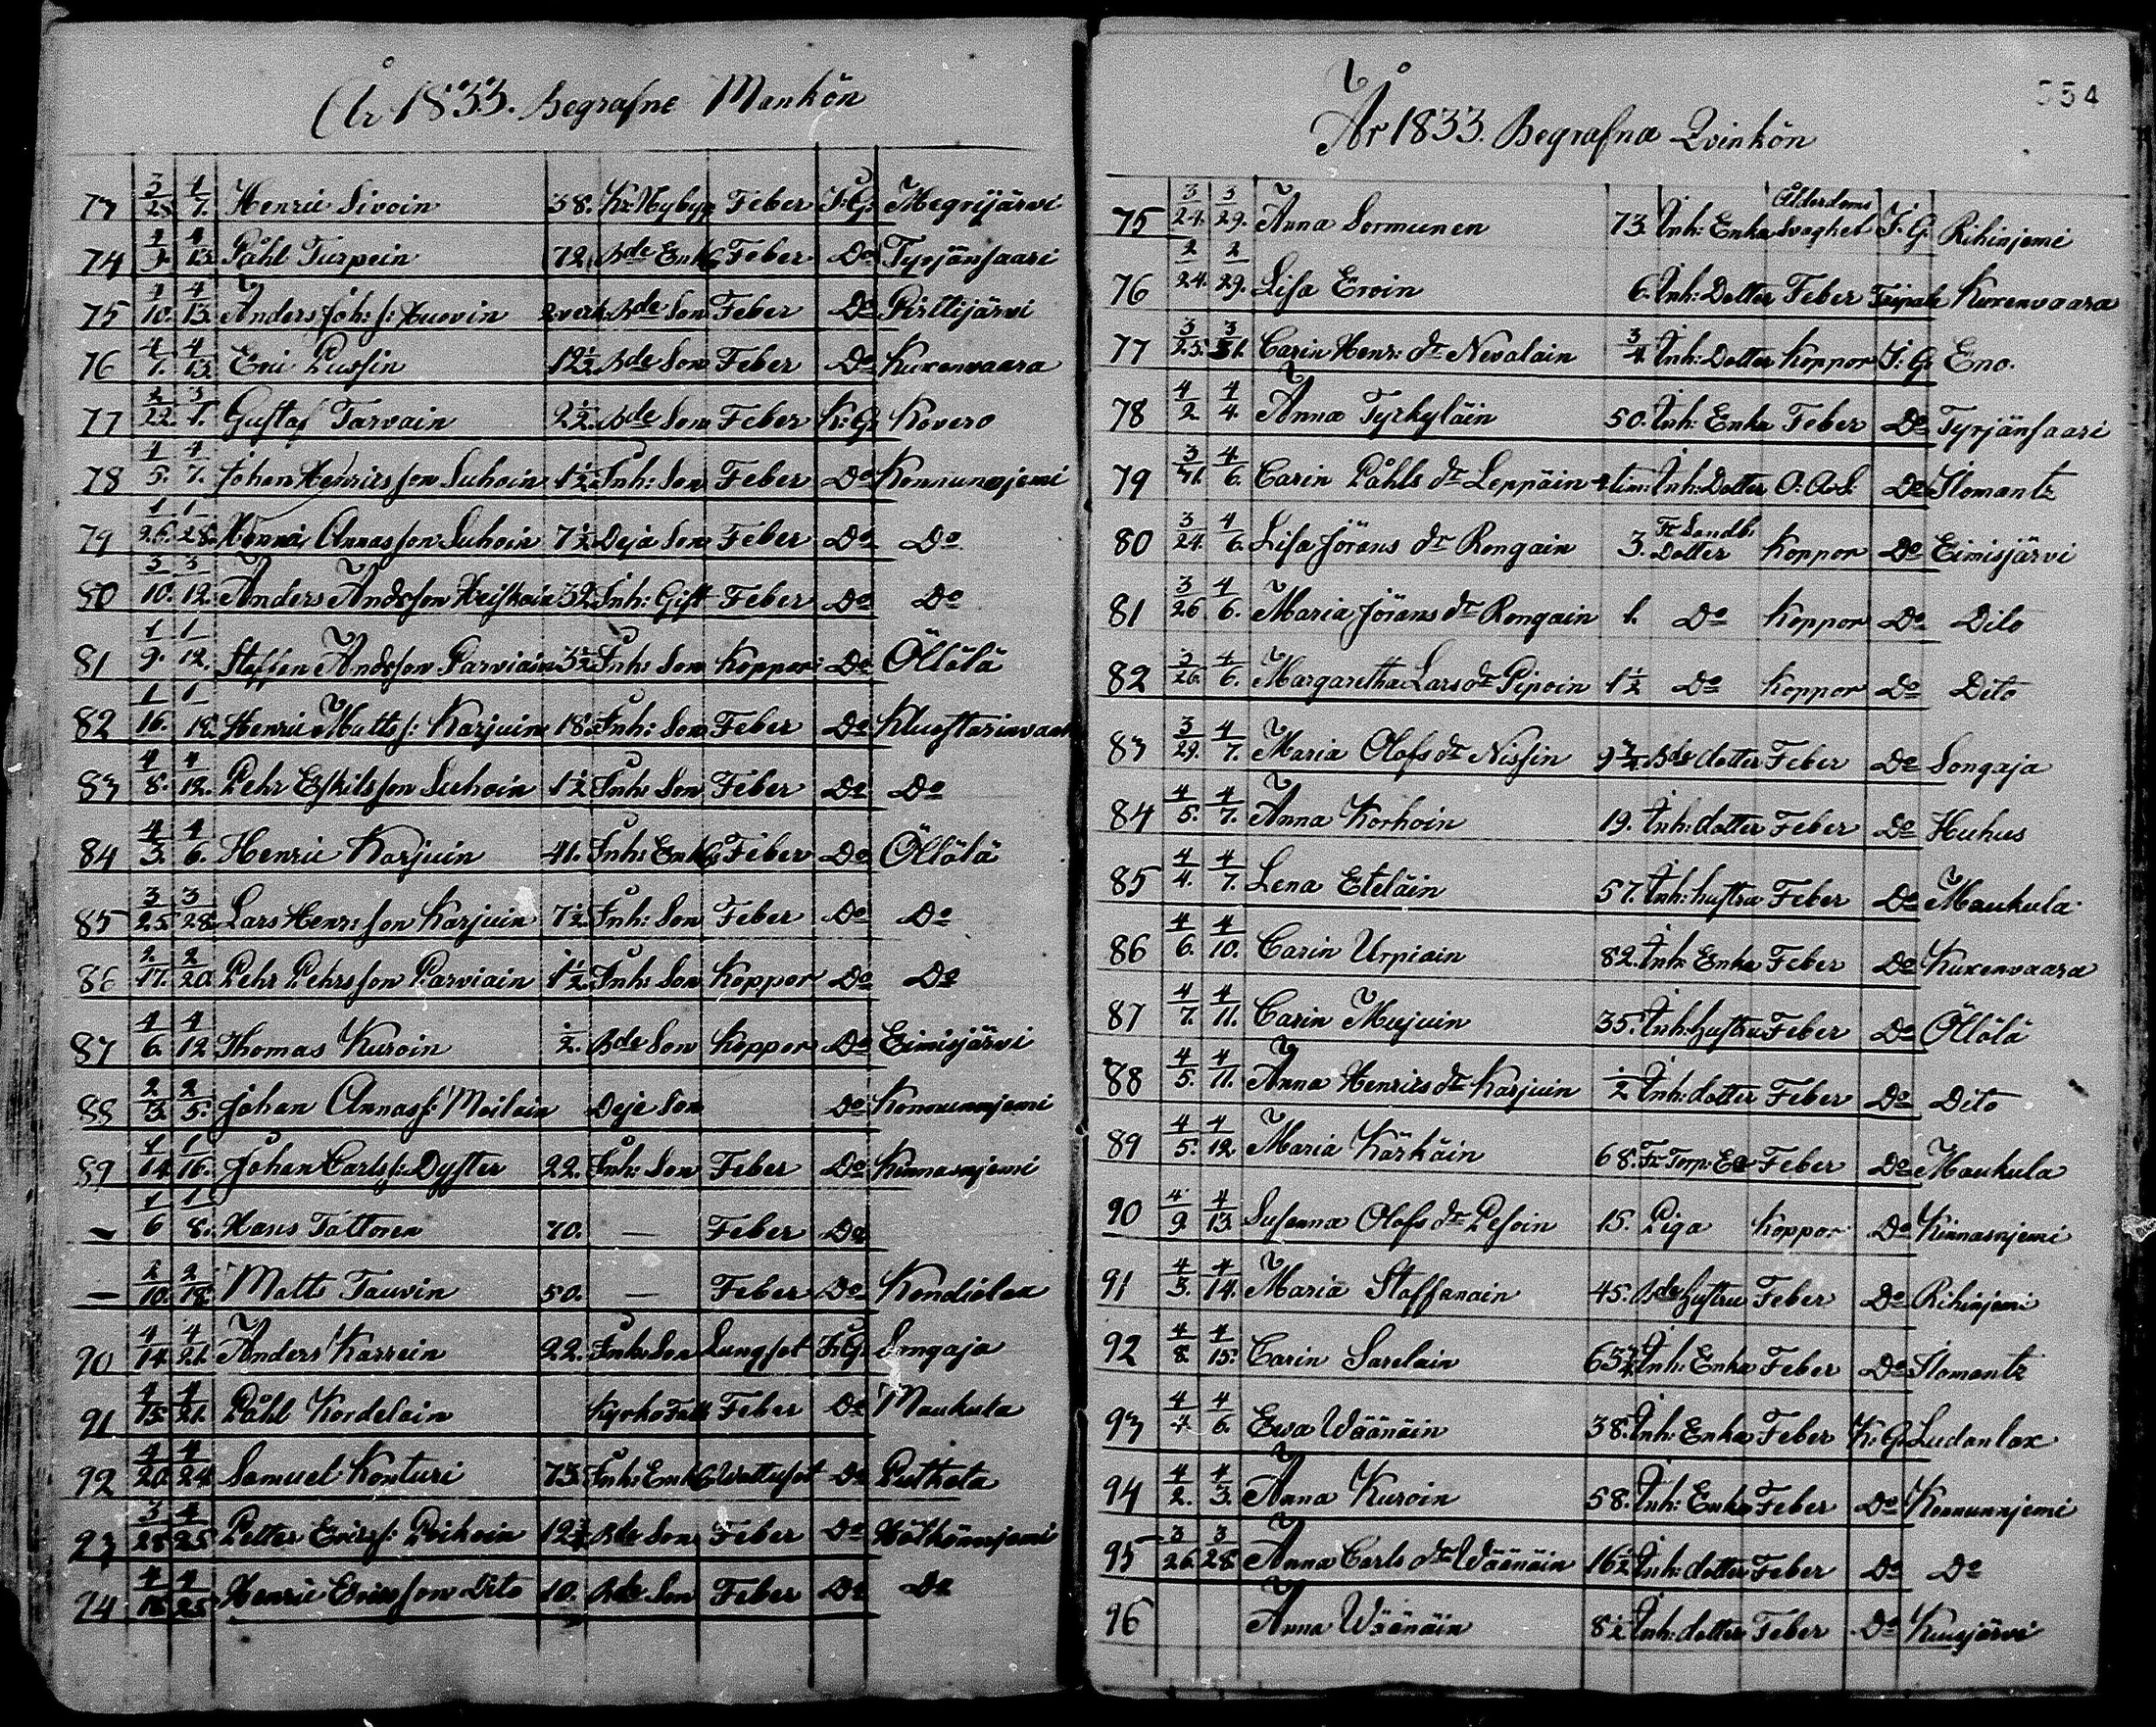 År 1833. Begrafne Mankön
73 3/28. 4/7. Henric Sivoin 38. Kr: Nybyg Feber I: G. Megrijärvi
74 4/9. 4/13. Påhl Turpein 72. Bde Enkl. Feber Do Tyrjänsaari
75 4/10. 4/13. Anders Joh: s: Huovin 2 veck. Bde Son Feber Do Pirttijärvi
76 4/7. 4/13. Eric Pussin 12½ Bde Son Feber Do Kuxenvaara
77 2/22. 3/1. Gustaf Tarvain 2½ Bde Son Feber K: G. Kovero
78 4/5. 4/7. Johan Henricsson Suhoin 1½ Inh: Son Feber Do Konnunnjemi
79 1/26. 1/28. Annasson Suhoin 7½ Deja Son Feber Do Do
80 3/10. 3/12. Anders Andrsson Heiskain 32 Inh: Gift Feber Do Do
81 1/9. 1/12. Staffen Andrsson Parviain 3½ Inh: Son Koppor Do Öllölä
82 1/16. 1/18. Henric Matts s: Karjuin 18. Inh: Son Feber Do
83 4/8. 4/12. Pehr Eskilsson Suhoin 1½ Inh: Son Feber Do Do
84 4/3. 4/6. Henric Karjuin 41. Inh: Enkl. Feber Do Öllölä
85 3/25. 3/28. Lars Henr: son Karjuin 7½ Inh: Son Feber Do Do
86 2/17. 2/20. Pehr Pehrsson Parviain 1½ Inh: Son Koppor Do Do
87 4/6. 4/12 Thomas Kuroin ½. Bde Son Koppor Do Eimisjärvi
88 2/3. 2/5. Johan Annas s: Moilain Deje Son Do Konnunnjemi
89 1/14. 1/16. Johan Carls s: Dyster 22. Inh: Son Feber Do Kinnasnjemi
– 1/6 1/8. Hans Tattonen 70. — Feber Do
– 2/10. 2/18. Matts Tauvin 50. — Feber Do Kondiolax
90 4/14. 4/21. Anders Karrein 22. Inh: Son Lungsot I: G. Songaja
91 4/15. 4/21. Påhl Kordelain Kyrko Fatt. Feber Do Maukula
92 4/20. 4/24. Samuel Konturi 73. Inh: Enkl. Wattusot Do Putkela
93 3/28. 4/25. Petter Erics s: Poikoin 12¾ Bde Son Feber Do Hätkönnjemi
94 4/18. 4/25. Henric Ericsson Dito 10. Bde Son Feber Do Do
334
År 1833. Begrafna Qvinkön
75 3/24. 3/29. Anna Sormunen 73. Inh: Enka Ålderdoms svaghet I: G. Rihinjemi
76 2/24. 2/29. Lisa Eroin 6. Inh: Dotter Feber Kuxenvaara
77 3/25. 3/31. Carin Henr: dr Nevalain ¾. Inh: Dotter Koppor I: G. Eno.
78 4/2. 4/4. Anna Tyrkyläin 50. Inh: Enka Feber Do Tyrjänsaari
79 3/31. 4/6. Carin Påhls dr Leppäin 2 tim: Inh: Dotter O: A: S. Do Ilomantz
80 3/24. 4/6. Lisa Jörans dr Rongain 3. Fr Landb: Dotter Koppor Do Eimisjärvi
81 3/26. 4/6. Maria Jörans dr Rongain 1. Do Koppor Do Dito
82 3/26. 4/6. Margaretha Lars dr Pipoin 1½ Do Koppor Do Dito
83 3/29. 4/7. Maria Olofs dr Nissin 9¾ Bde dotter Feber Do Songaja
84 4/5. 4/7. Anna Korhoin 19. Inh: dotter Feber Do Huhus
85 4/4. 4/7. Lena Eteläin 57. Inh: hustru Feber Do Maukula
86 4/6. 4/10. Carin Urpiain 82. Inh: Enka Feber Do Kuxenvaara
87 4/7. 4/11. Carin Mujuin 35. Inh: hustru Feber Do Öllölä
88 4/5. 4/11. Anna Henrics dr Karjuin ½ Inh: dotter Feber Do Dito
89 4/5. 4/12 Maria Kärkäin 68. Fr Torp: Ea Feber Do Maukula
90 4/9. 4/13. Susanna Olofs dr Pesoin 15. Piga Koppor Do Kinnasnjemi
91 4/3. 4/14. Maria Staffanain 45. Bde hustru Feber Do Rihinjemi
92 4/8. 4/15. Carin Sarelain 63¾ Inh: Enka Feber Do Ilomantz
93 4/4. 4/6. Ewa Wäänäin 38. Inh: Enka Feber K: G. Ludanlax
94 4/2. 4/3. Anna Kuroin 58. Inh: Enka Feber Do Konnunnjemi
95 3/26. 3/28. Anna Carls dr Wäänäin 16½ Inh: dotter Feber Do Do
96 Anna Wäänäin 8½ Inh: dotter Feber Do Kuusjärvi